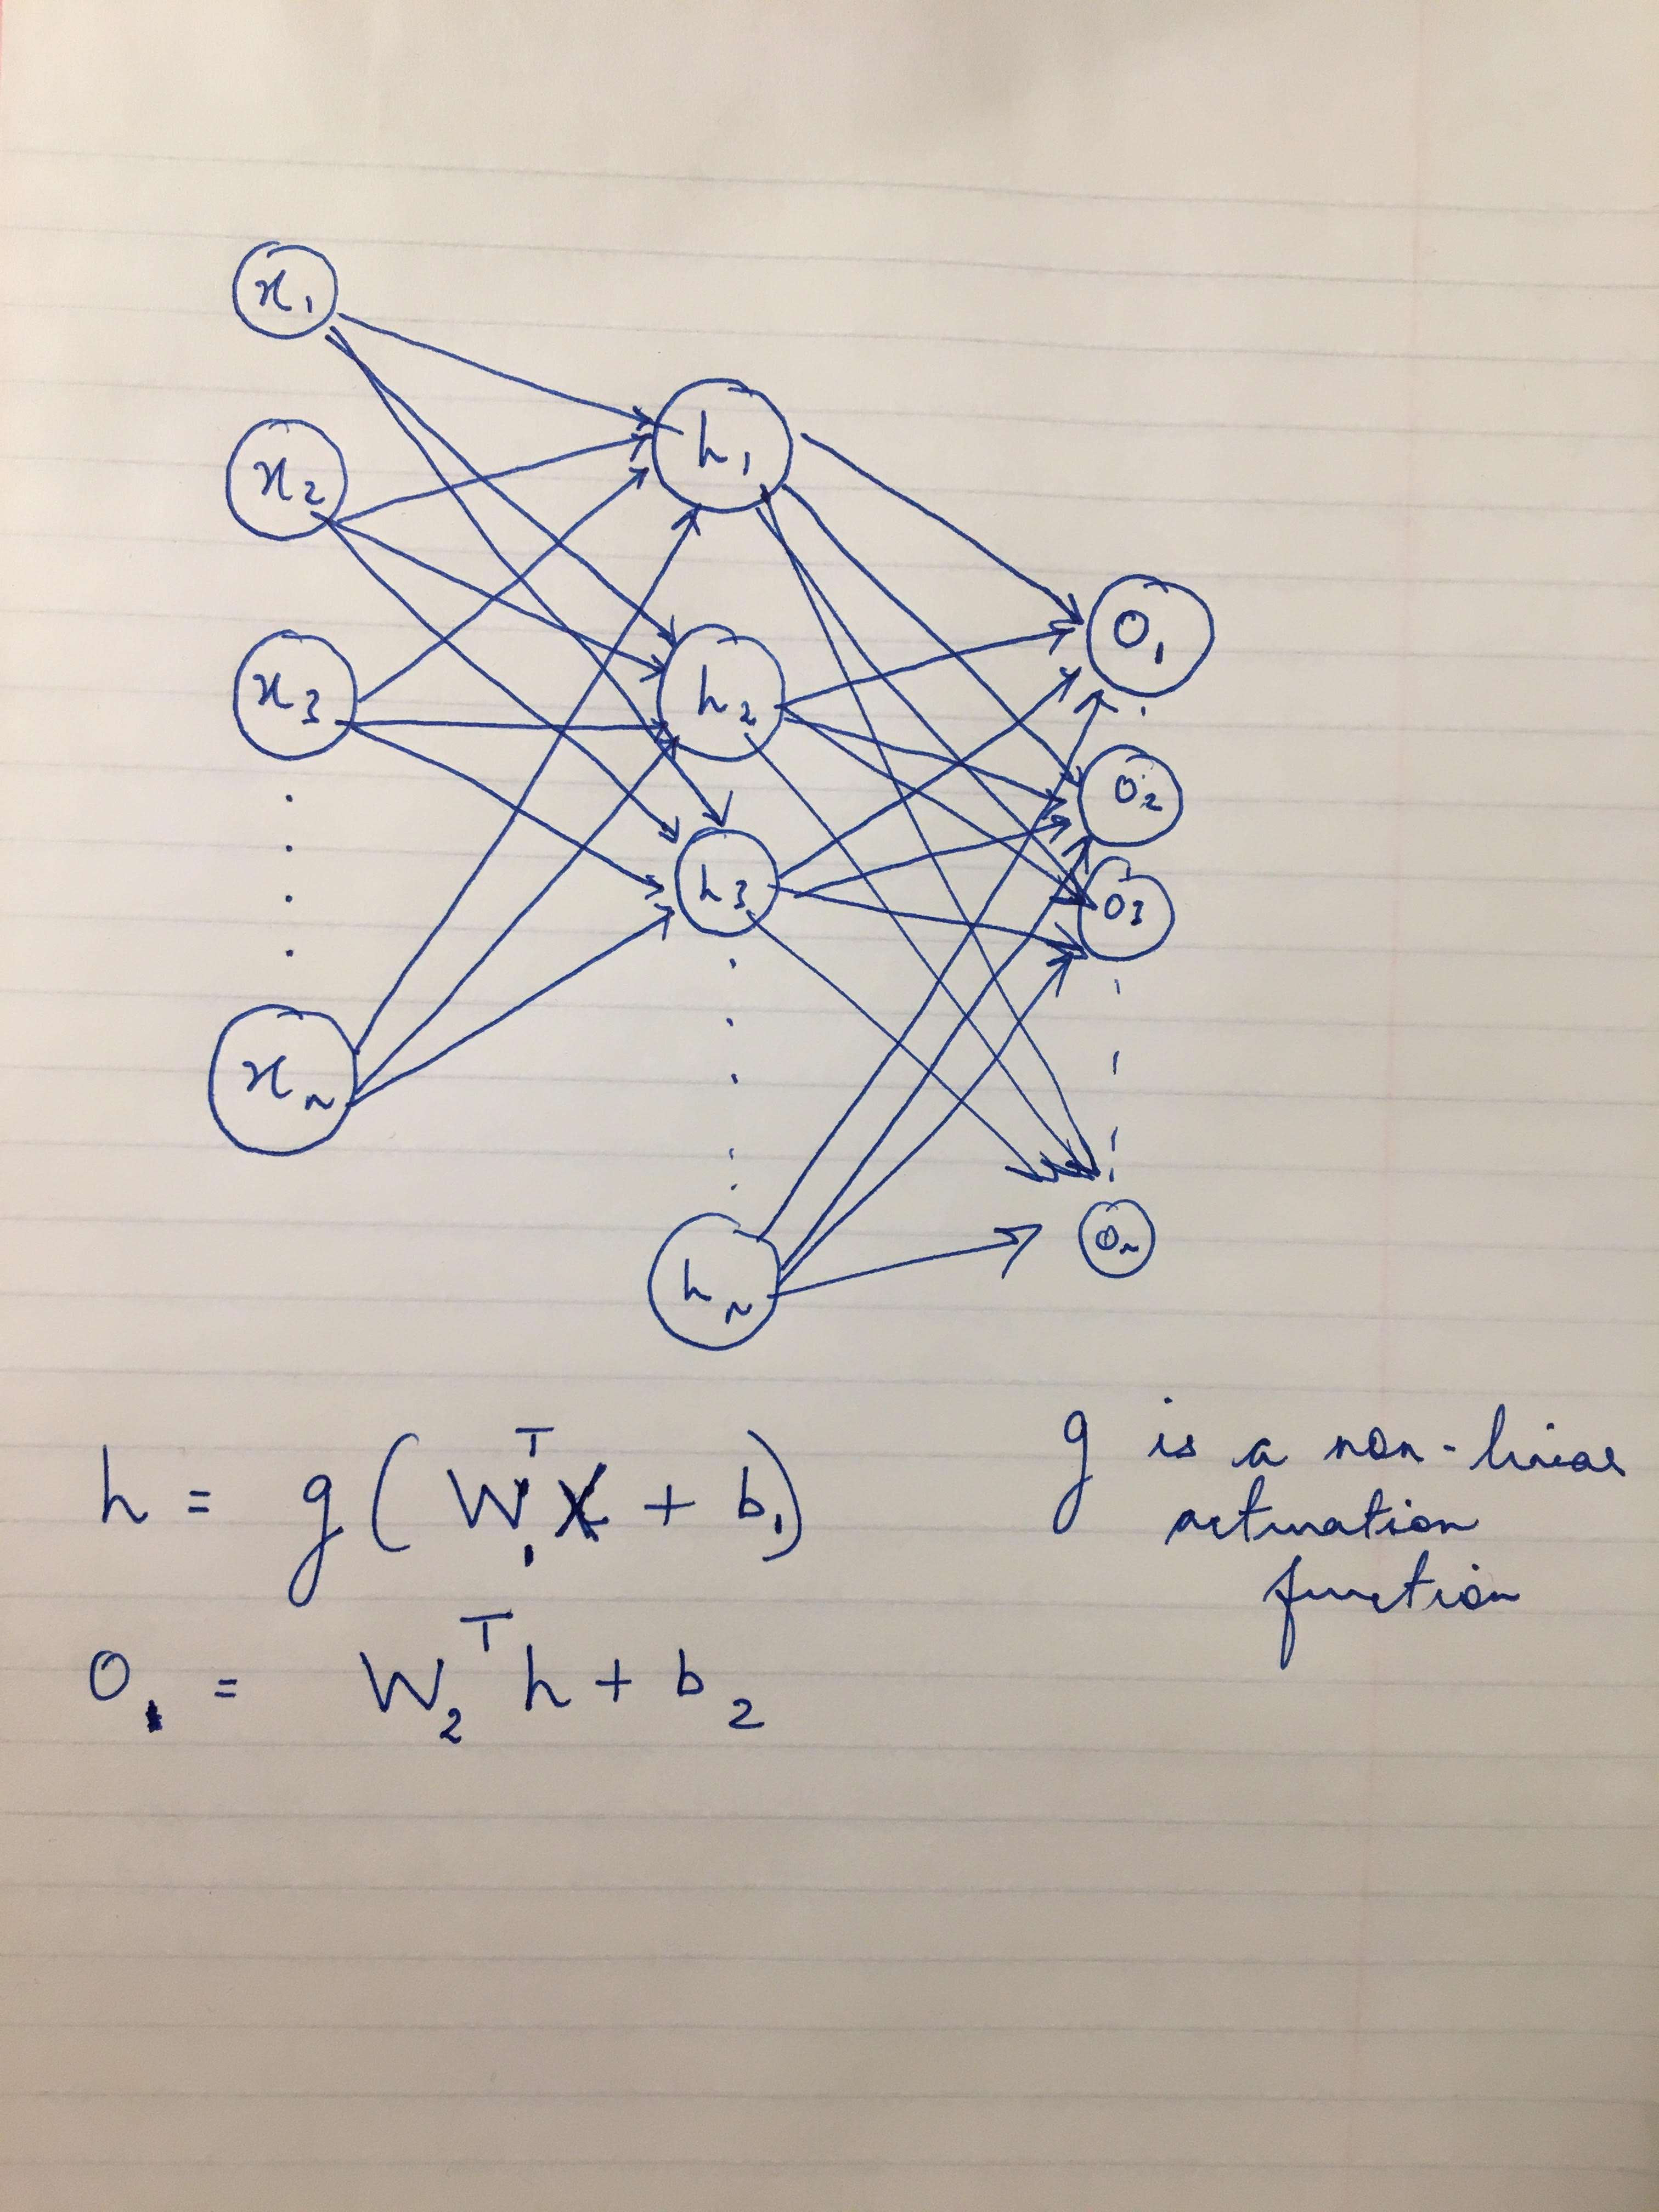 x₁
x₂
x₃
xₙ
h₁
h₂
h₃
hₙ
o₁
o₂
o₃
oₙ
h = g(W₁ᵀx + b₁)
g is a non-linear
activation
function
O = W₂ᵀh + b₂